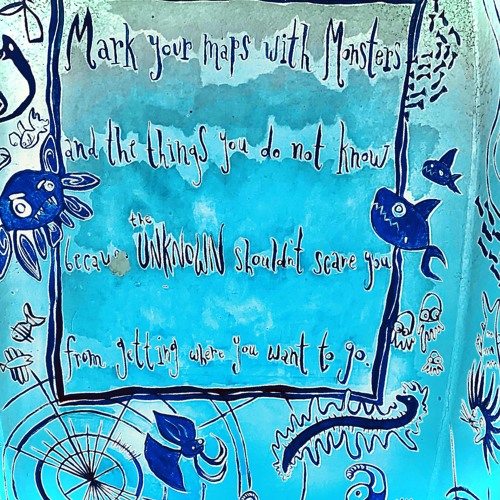 Mark your maps with Monsters
and the things you do not know
because the UNKNOWN shouldn't scare you
from getting where you want to go.